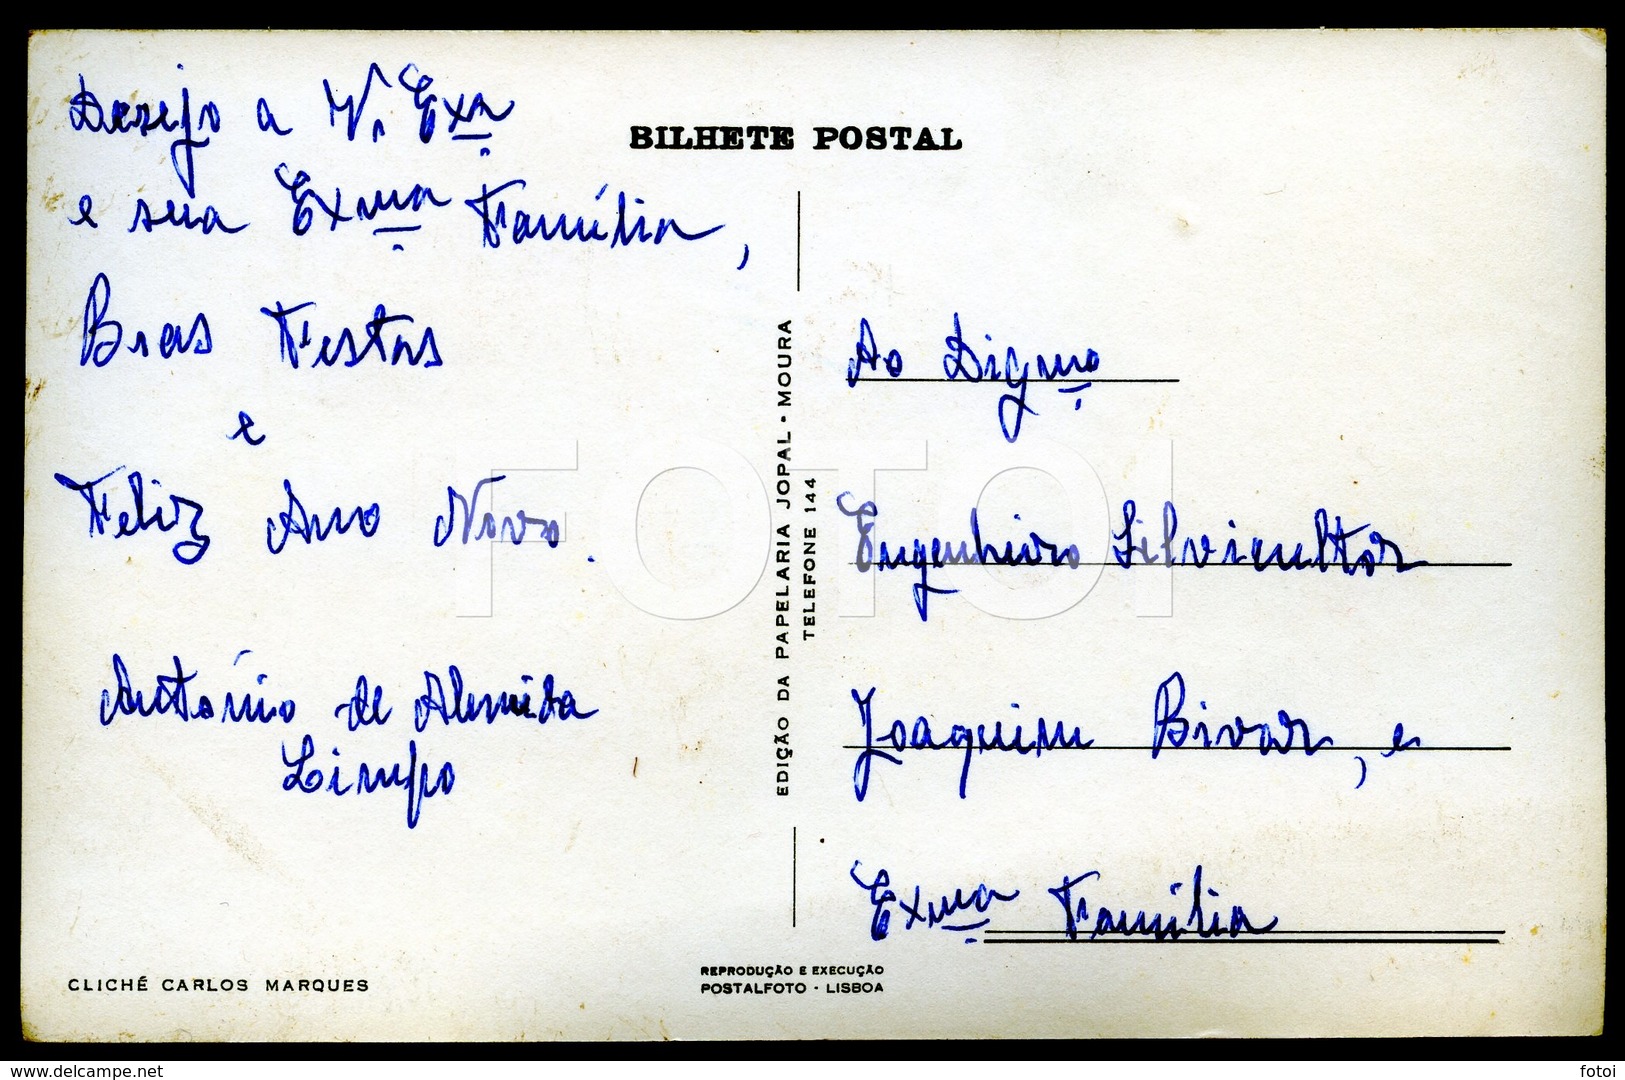 BILHETE POSTAL
Desejo a V. Exª.
e sua Exmª. Família,
Boas Festas
e
Feliz Ano Novo.
António de Almeida
Limpo
CLICHÉ CARLOS MARQUES
EDIÇÃO DA PAPELARIA JOPAL - MOURA
TELEFONE 144
REPRODUÇÃO E EXECUÇÃO
POSTALFOTO - LISBOA
Ao Digmº.
Engenheiro Silvicultor
Joaquim Bivar, e
Exmª. Família
FOTOI
www.delcampe.net
fotoi